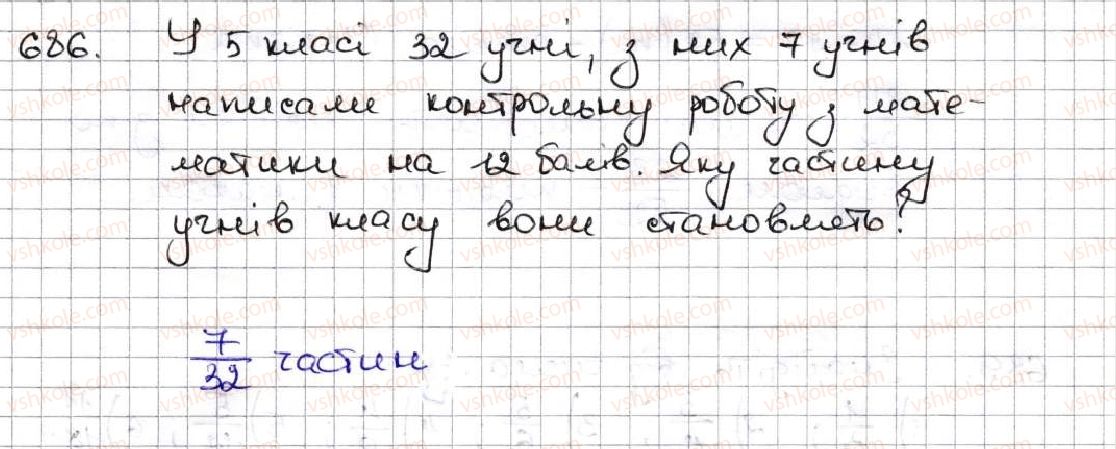 686. У 5 класі 32 учні, з них 7 учнів
написали контрольну роботу з мате-
матики на 12 балів. Яку частину
учнів класу вони становлять?
7/32 частин